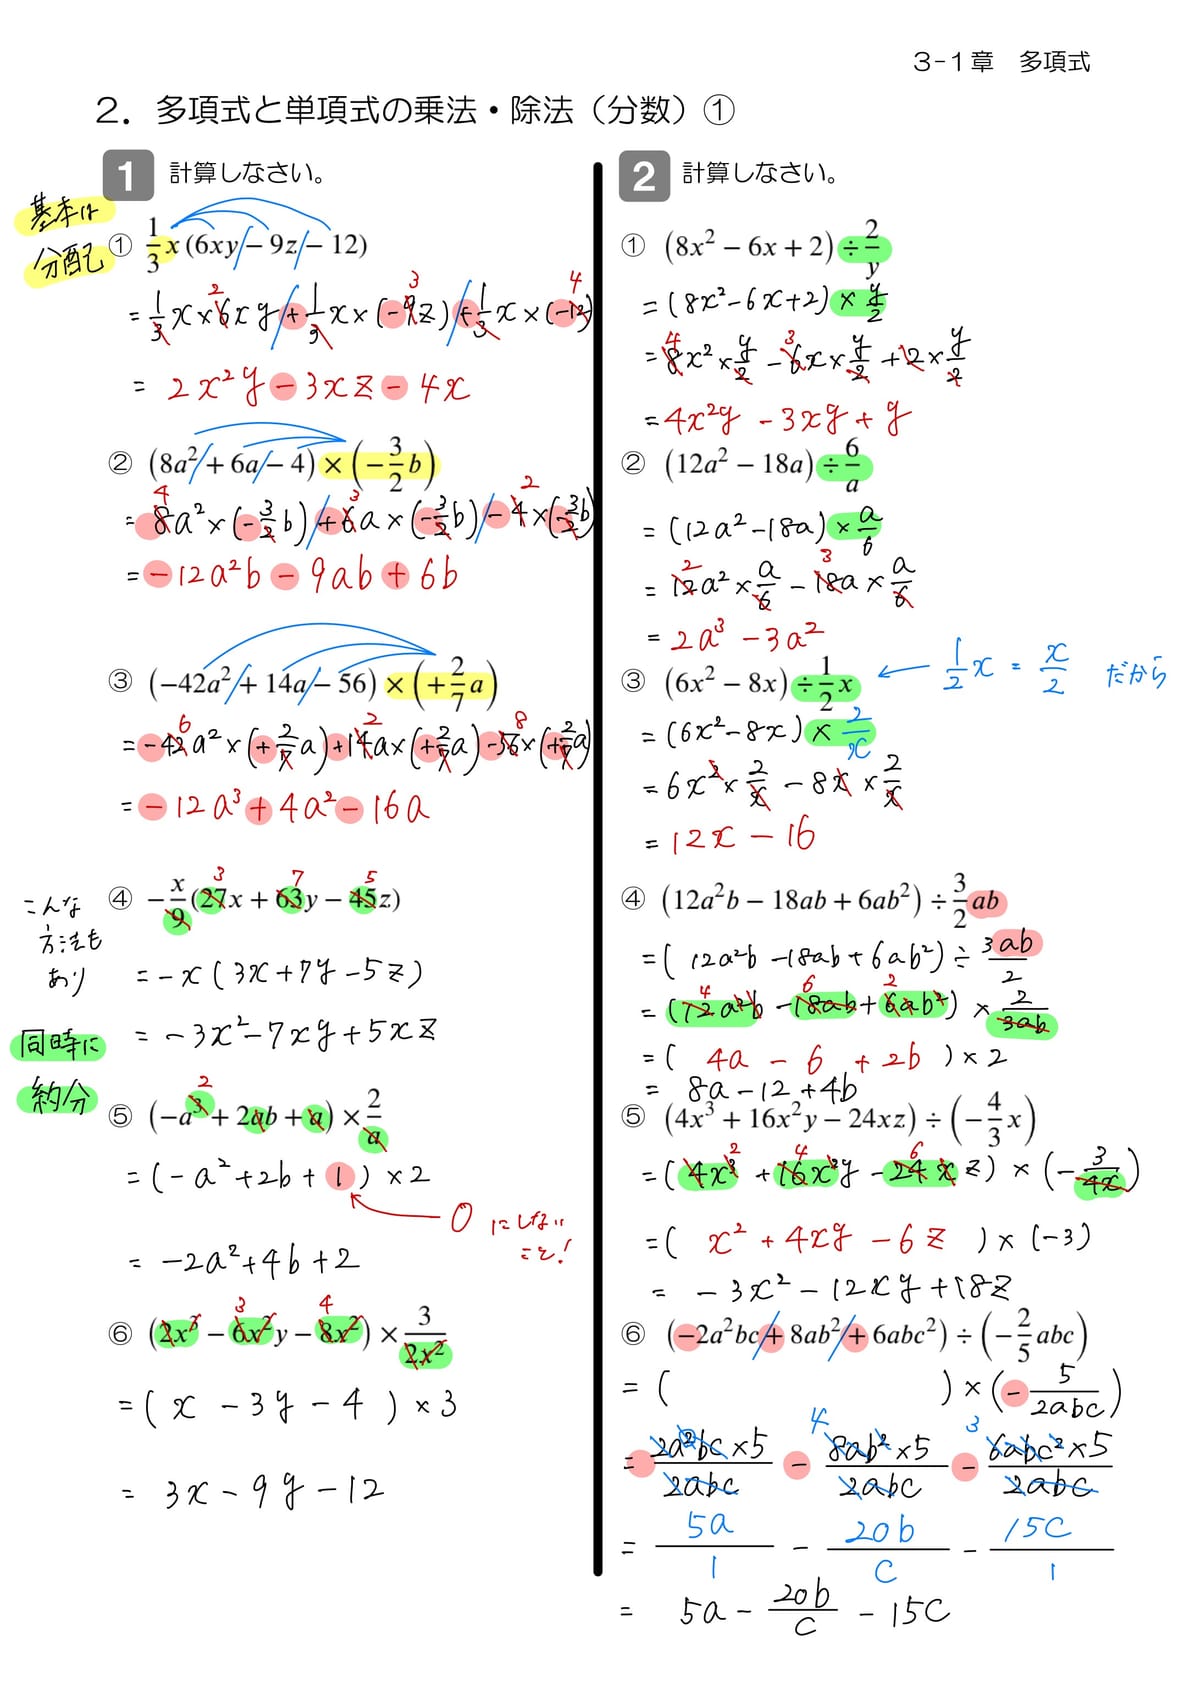 3-1章　多項式
2．多項式と単項式の乗法・除法（分数）①
1 計算しなさい。
基本は
分配
① 1/3 x (6xy − 9z − 12)
= 1/3 x × 6xy + 1/3 x × (−9z) + 1/3 x × (−12)
2 3 4
= 2x²y − 3xz − 4x
② (8a² + 6a − 4) × (−3/2 b)
= 8a² × (−3/2 b) + 6a × (−3/2 b) − 4 × (−3/2 b)
4 3 2
= −12a²b − 9ab + 6b
③ (−42a² + 14a − 56) × (+2/7 a)
= −42a² × (+2/7 a) + 14a × (+2/7 a) − 56 × (+2/7 a)
6 2 8
= −12a³ + 4a² − 16a
こんな
方法も
あり
同時に
約分
④ −x/9 (27x + 63y − 45z)
3 7 5
= −x (3x + 7y − 5z)
= −3x² − 7xy + 5xz
⑤ (−a³ + 2ab + a) × 2/a
2
= (−a² + 2b + 1) × 2
0 にしない
こと!
= −2a² + 4b + 2
⑥ (2x³ − 6x²y − 8x²) × 3/2x²
3 4
= (x − 3y − 4) × 3
= 3x − 9y − 12
2 計算しなさい。
① (8x² − 6x + 2) ÷ 2/y
= (8x² − 6x + 2) × y/2
= 8x² × y/2 − 6x × y/2 + 2 × y/2
4 3
= 4x²y − 3xy + y
② (12a² − 18a) ÷ 6/a
= (12a² − 18a) × a/6
= 12a² × a/6 − 18a × a/6
2 3
= 2a³ − 3a²
③ (6x² − 8x) ÷ 1/2 x
← 1/2 x = x/2 だから
= (6x² − 8x) × 2/x
= 6x² × 2/x − 8x × 2/x
= 12x − 16
④ (12a²b − 18ab + 6ab²) ÷ 3/2 ab
= (12a²b − 18ab + 6ab²) ÷ 3ab/2
= (12a²b − 18ab + 6ab²) × 2/3ab
4 6 2
= (4a − 6 + 2b) × 2
= 8a − 12 + 4b
⑤ (4x³ + 16x²y − 24xz) ÷ (−4/3 x)
= (4x³ + 16x²y − 24xz) × (−3/4x)
2 4 6
= (x² + 4xy − 6z) × (−3)
= −3x² − 12xy + 18z
⑥ (−2a²bc + 8ab² + 6abc²) ÷ (−2/5 abc)
= ( ) × (−5/2abc)
= 2a²bc×5/2abc − 8ab²×5/2abc − 6abc²×5/2abc
4 3
= 5a/1 − 20b/c − 15c/1
= 5a − 20b/c − 15c